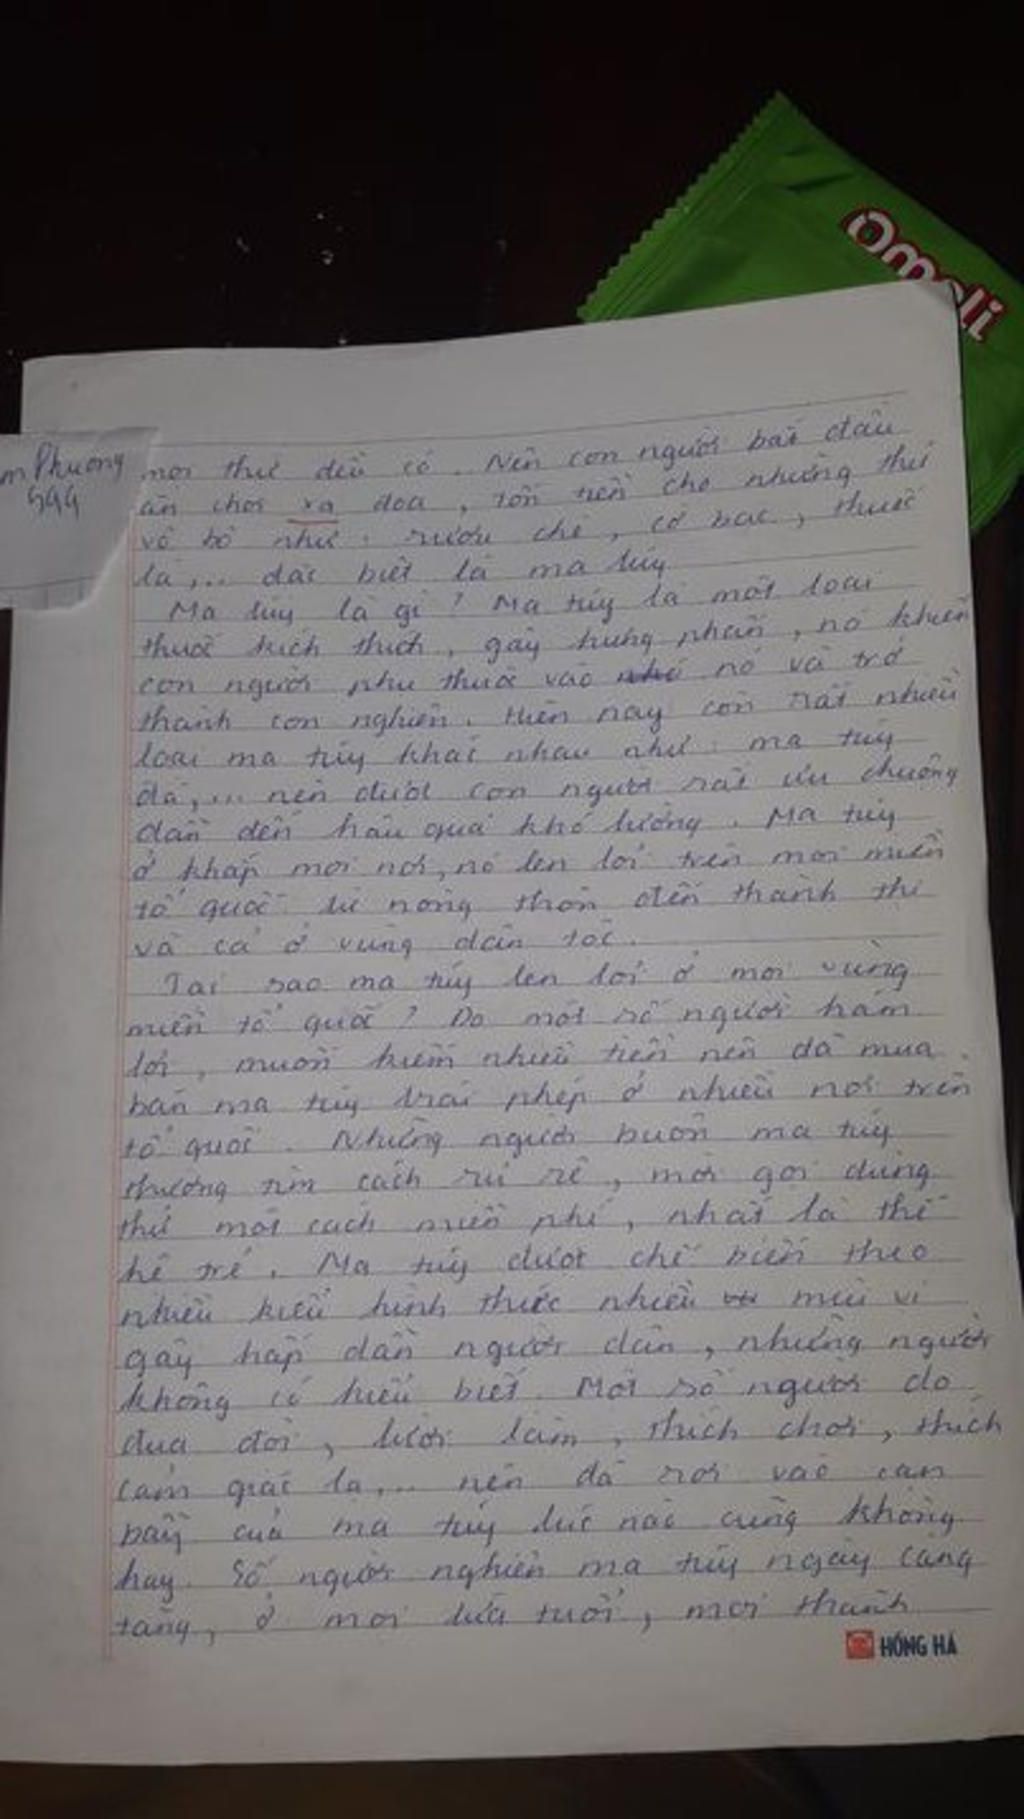 omeli
m Phương
mọi thứ đều có. Nên con người bắt đầu
ăn chơi xa đọa, tốn tiền cho những thứ
vô bổ như: rượu chè, cờ bạc, thuốc
lá,... đặc biệt là ma túy
Ma túy là gì? Ma túy là một loại
thuốc kích thích, gây hưng phấn, nó khiến
con người phụ thuộc vào nó và trở
thành con nghiện. Hiện nay còn rất nhiều
loại ma túy khác nhau như: ma túy
đá,... nên được con người rất ưu chuộng
dẫn đến hậu quả khó lường. Ma túy
ở khắp mọi nơi, nó len lỏi trên mọi miền
tổ quốc từ nông thôn đến thành thị
và cả ở vùng dân tộc.
Tại sao ma túy len lỏi ở mọi vùng
miền tổ quốc? Do một số người hám
lợi, muốn kiếm nhiều tiền nên đã mua
bán ma túy trái phép ở nhiều nơi trên
tổ quốc. Những người buôn ma túy
thường tìm cách rủ rê, mời gọi dùng
thử một cách miễn phí, nhất là thế
hệ trẻ. Ma túy được chế biến theo
nhiều kiểu hình thức nhiều mùi vị
gây hấp dẫn người dân, những người
không có hiểu biết. Một số người do
đua đòi, lười làm, thích chơi, thích
cảm giác lạ,... nên đã rơi vào cạn
bẫy của ma túy lúc nào cũng không
hay. Số người nghiện ma túy ngày càng
tăng, ở mọi lứa tuổi, mọi thành
HỒNG HÀ